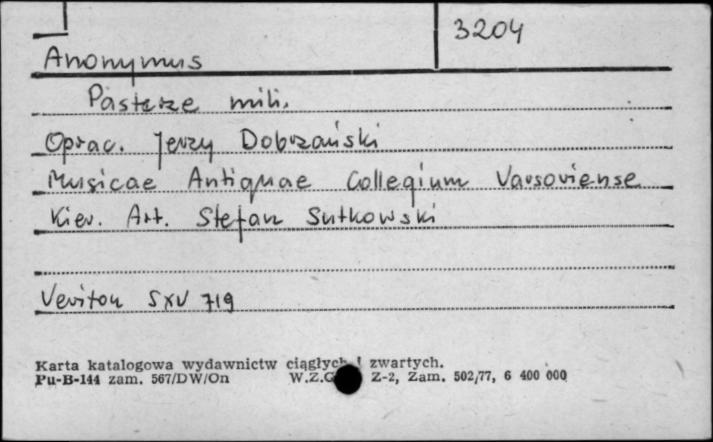 3204
Anonymus
Pasterze mili.
Oprac. Jerzy Dobrzański
Musicae Antiquae Collegium Varsoviense
Kier. Art. Stefan Sutkowski
Veriton SXV 719
Karta katalogowa wydawnictw ciągłych i zwartych.
Pu-B-144 zam. 567/DW/On W.Z.G Z-2, Zam. 502/77, 6 400 000